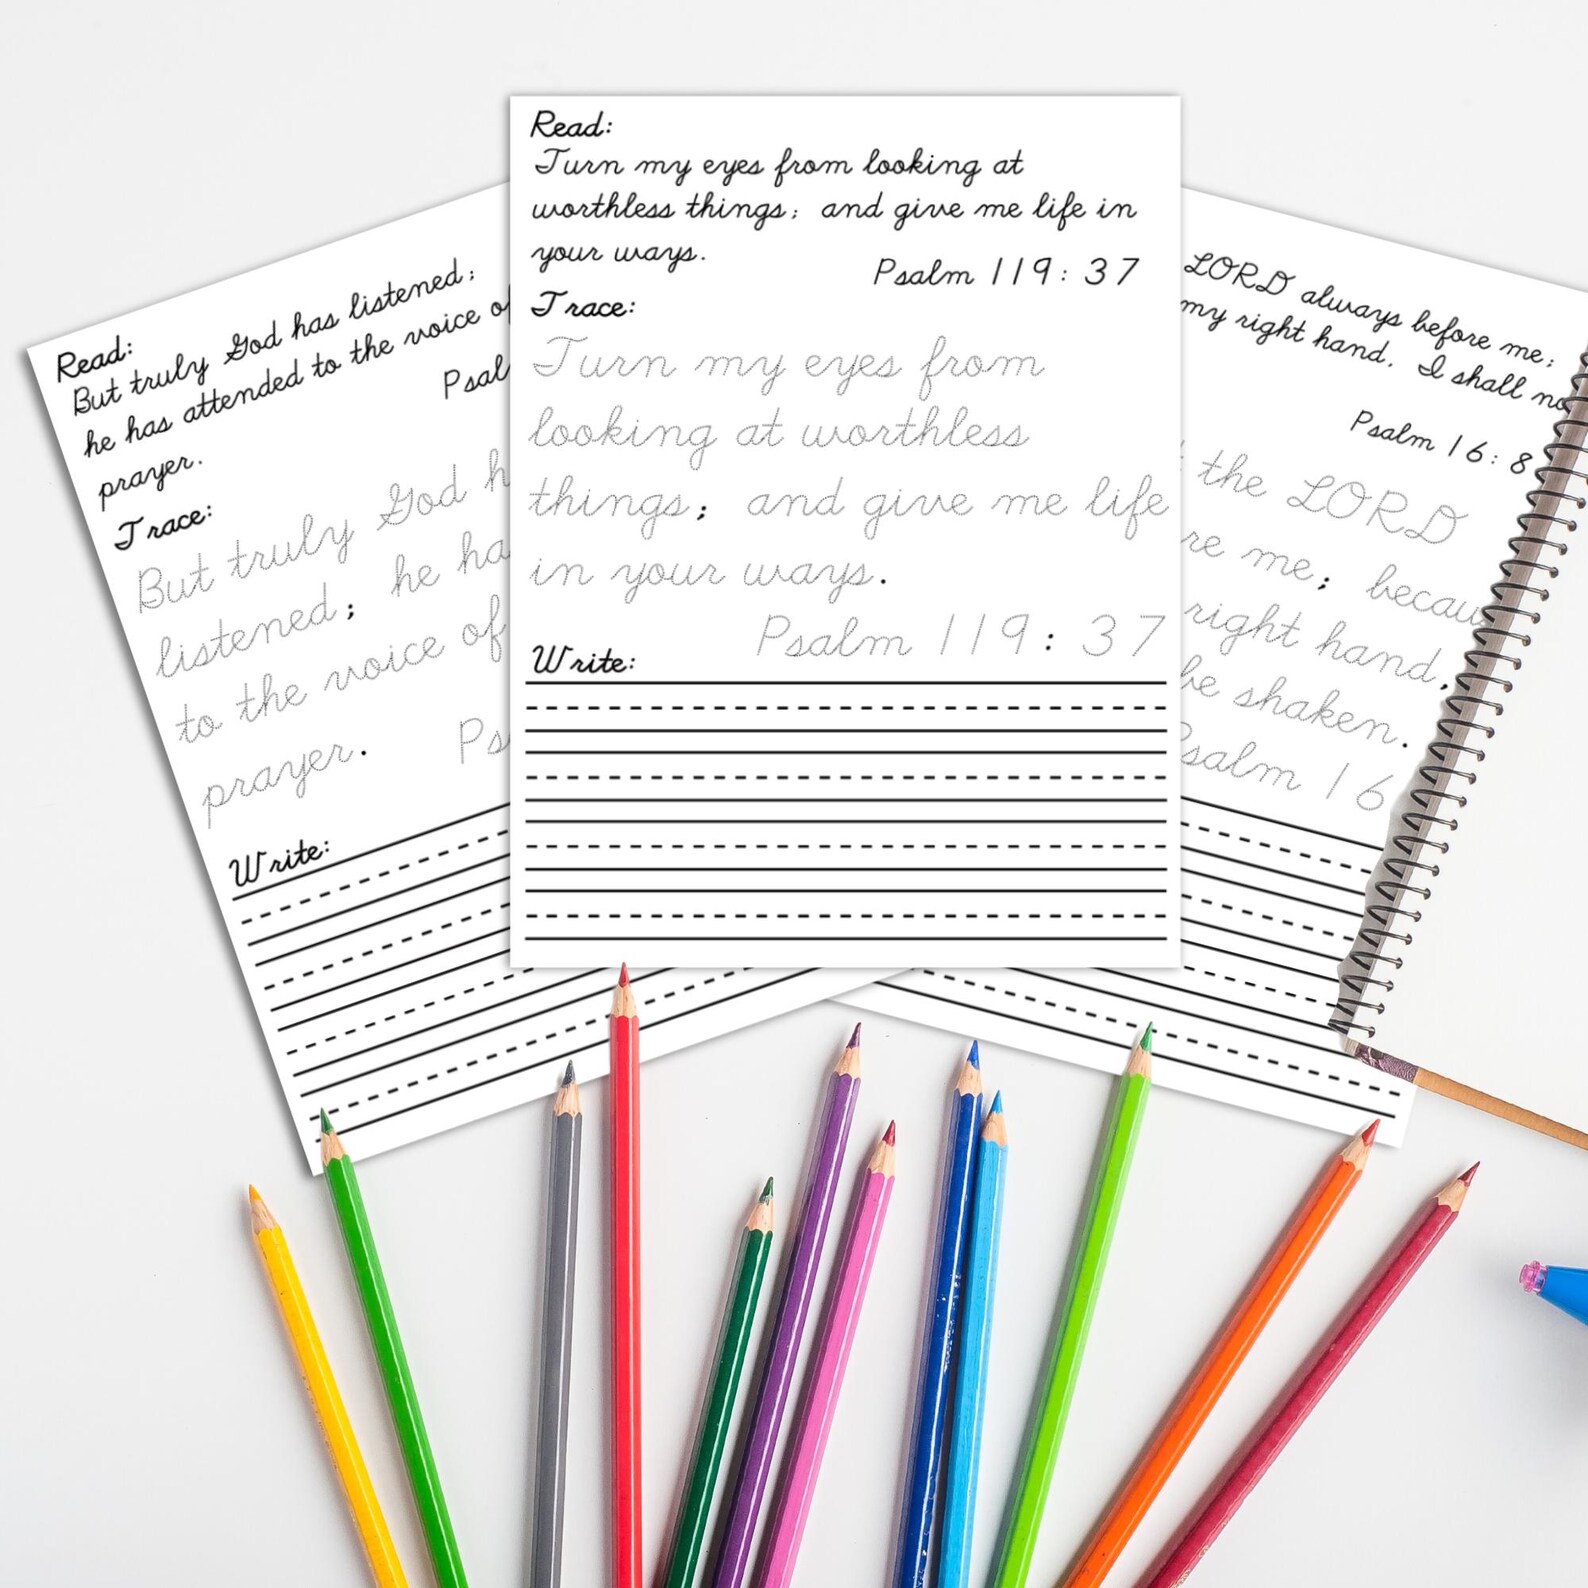 Read:
But truly God has listened;
he has attended to the voice of
prayer.
Trace:
But truly God
listened; he
to the voice of
prayer.
Write:
Read:
Turn my eyes from looking at
worthless things; and give me life in
your ways.
Psalm 119:37
Trace:
Turn my eyes from
looking at worthless
things; and give me life
in your ways.
Psalm 119:37
Write:
LORD always before me;
my right hand. I shall
Psalm 16:8
the LORD
me;
right hand,
be shaken.
Psalm 16